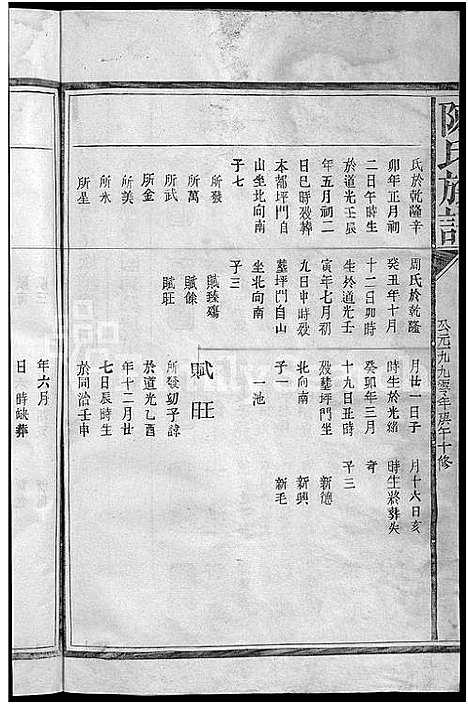 陳氏族譜
公元一九九零年庚午十修
氏於乾隆辛
卯年正月初
二日午時生
於道光壬辰
年五月初二
日巳時歿葬
本都坪門自
山坐北向南
子七
所發
所萬
所武
所金
所美
所水
所星
周氏於乾隆
癸丑年十月
十二日卯時
生於道光壬
寅年七月初
九日申時歿
墓坪門自山
坐北向南
子三
賦臻殤
賦餘
賦旺
月廿一日子
時生於光緒
癸卯年三月
十九日丑時
歿墓坪門坐
北向南
子一
一池
月十六日亥
時生將葬失
子三
新德
新興
新毛
賦旺
所發幼子諱
於道光乙酉
年十二月廿
七日辰時生
於同治壬申
年六月
日時缺葬